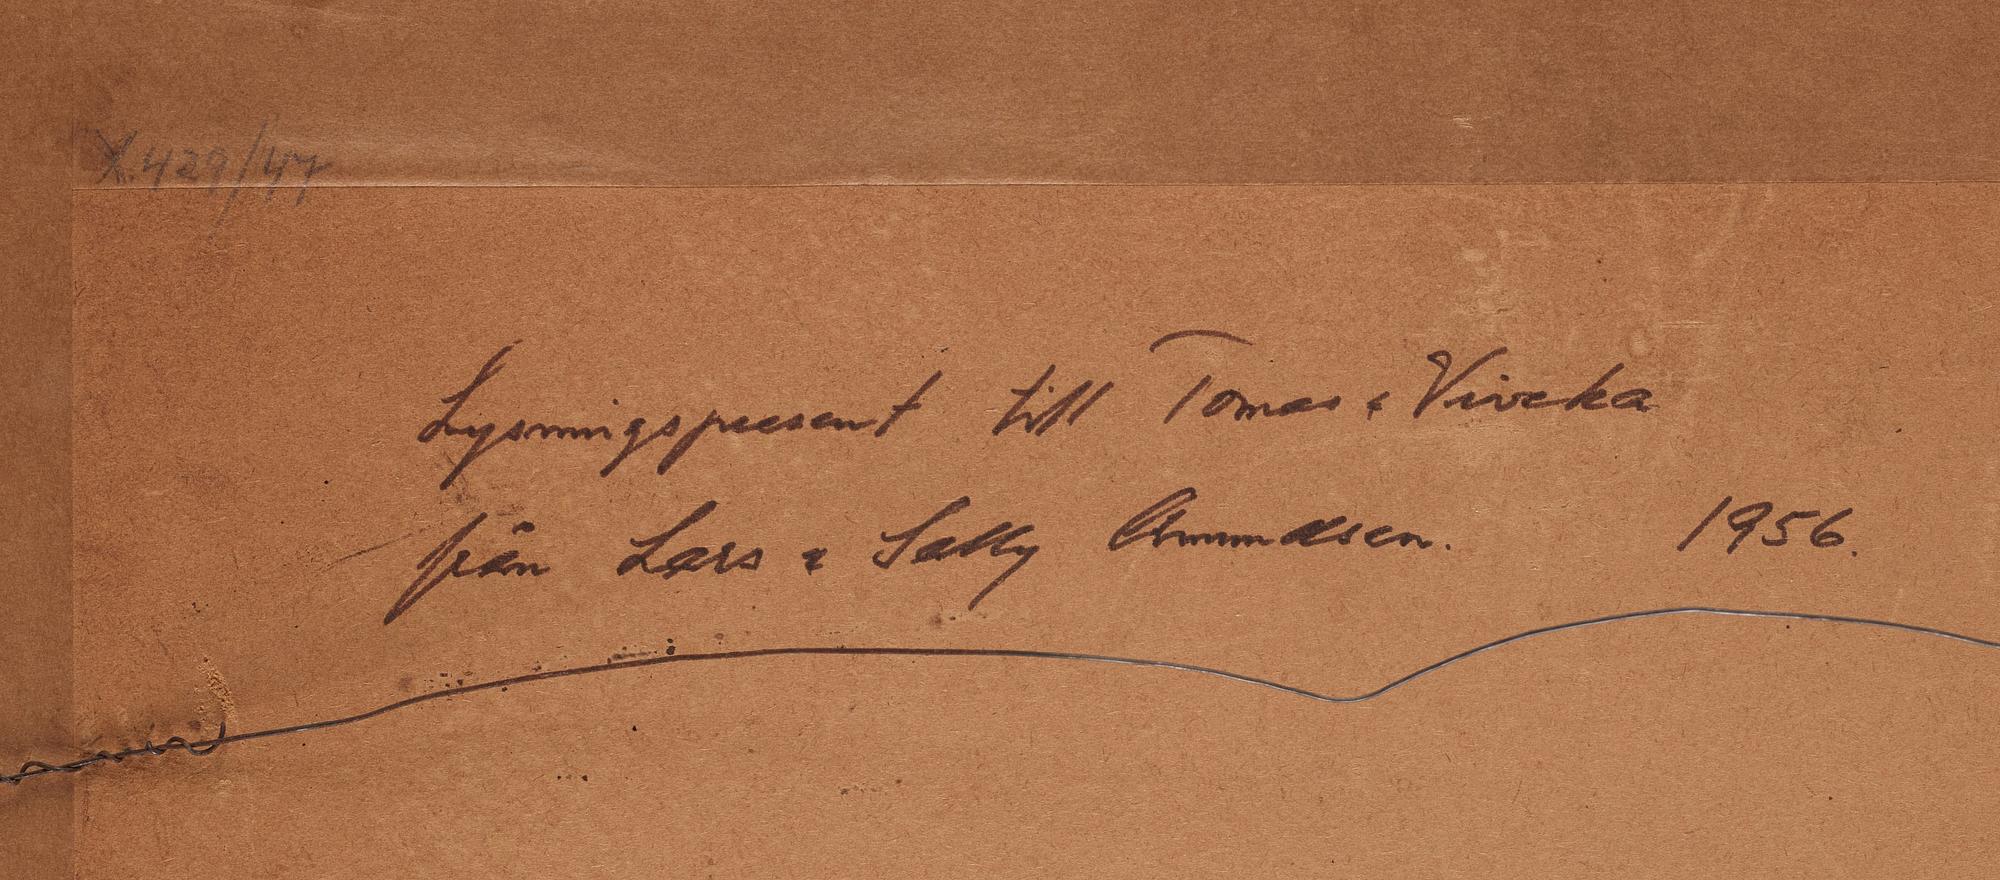 X.429/47
Lysningspresent till Tomas & Viveka
från Lars & Sally Amundsen. 1956.